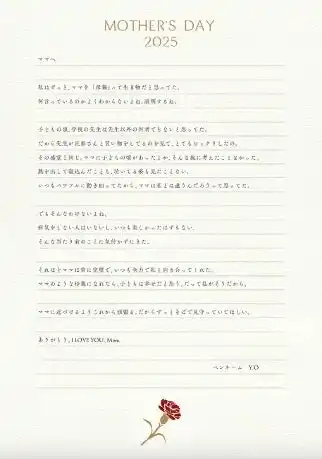 MOTHER'S DAY
2025
ママへ
私はずっと、ママを「母親」って生き物だと思ってた。
何言っているのかよくわからないよね。説明するね。
子どもの頃、学校の先生は先生以外の何者でもないと思ってた。
だから先生が旦那さんと買い物をしてるのを見て、とてもビックリしたの。
その感覚と同じ。ママに子どもの頃があったとか、そんな風に考えたことなかった。
熱を出して寝込んだことも、泣いてる姿も見たことない。
いつもパワフルに動き回ってたから、ママは私とは違うんだろうって思ってた。
でもそんなわけないよね。
病気をしない人はいないし、いつも楽しかったはずもない。
そんな当たり前のことに気付かずにきた。
それほどママは常に完璧で、いつも全力で私と向き合ってくれた。
ママのような母親になれたら、子どもは幸せだと思う。だって私がそうだから。
ママに近づけるようこれから頑張る。だからずっとそばで見守っていてほしい。
ありがとう。I LOVE YOU, Mom.
ペンネーム Y.O